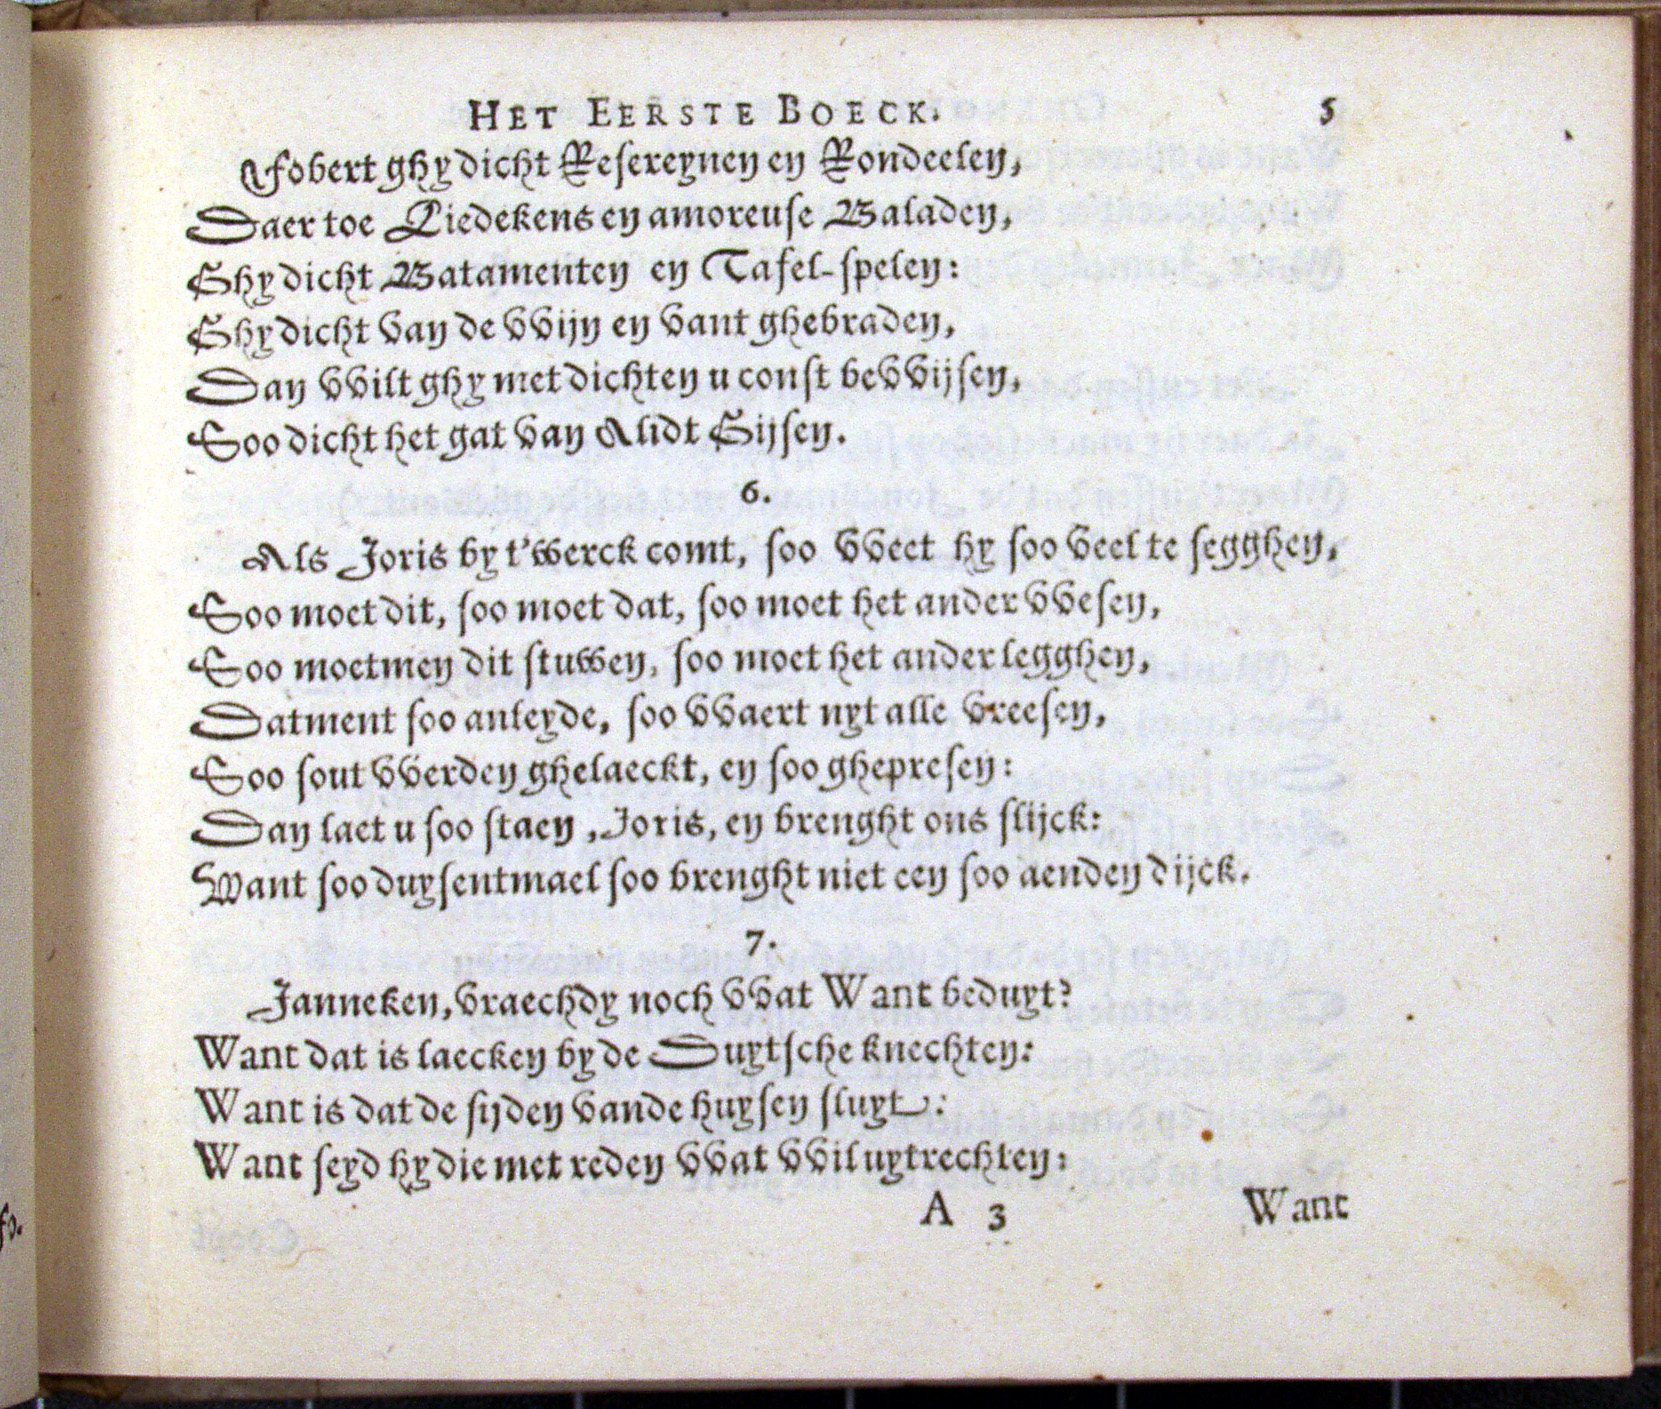 HET EERSTE BOECK. 5
Fobert ghy dicht Refereynen en Rondeelen,
Daer toe Liedekens en amoreuse Baladen,
Ghy dicht Batamenten en Tafel-spelen:
Ghy dicht van de vvijn en vant ghebraden,
Dan vvilt ghy met dichten u const bevvijsen,
Soo dicht het gat van Alidt Gijsen.
6.
Als Joris by t'werck comt, soo vveet hy soo veel te segghen,
Soo moet dit, soo moet dat, soo moet het ander vvesen,
Soo moetmen dit stuwen, soo moet het ander legghen,
Datment soo anleyde, soo vvaert uyt alle vreesen,
Soo sout vverden ghelaeckt, en soo ghepresen:
Dan laet u soo staen, Joris, en brenght ons slijck:
Want soo duysentmael soo brenght niet een soo aenden dijck.
7.
Janneken, vraechdy noch vvat Want beduyt?
Want dat is laecken by de Duytsche knechten:
Want is dat de sijden vande huysen sluyt:
Want seyd hy die met reden vvat vvil uytrechten:
A 3 Want
so.